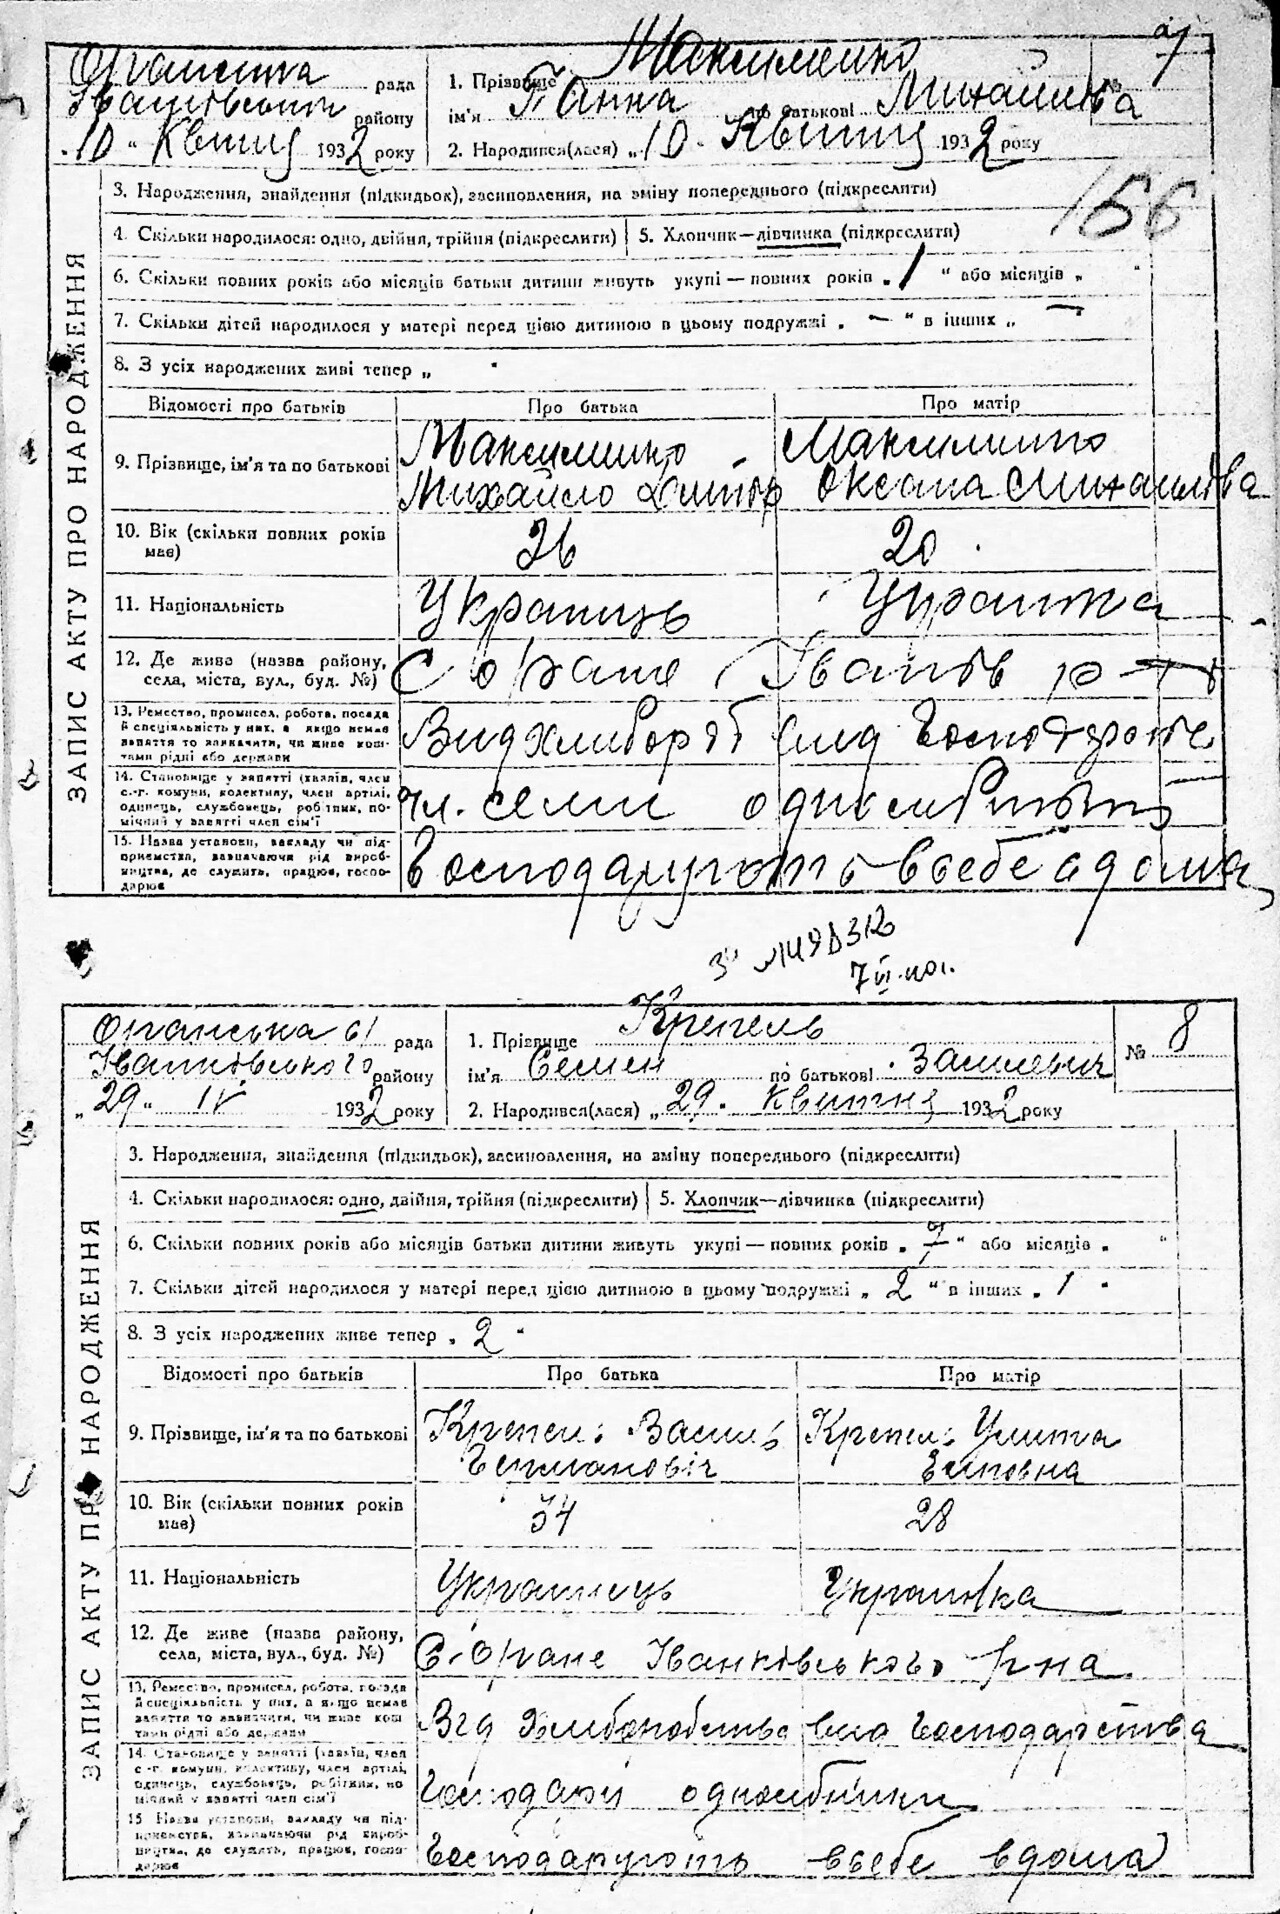 Максименко
рада 1. Прізвище № 7
району ім'я Ганна по батькові Михайлівна
„10" Квітня 1932 року 2. Народився(лася) „10" Квітня 1932 року
3. Народження, знайдення (підкидьок), засиновлення, на зміну попереднього (підкреслити)
156
4. Скільки народилося: одно, двійня, трійня (підкреслити) 5. Хлопчик—дівчинка (підкреслити)
6. Скільки повних років або місяців батьки дитини живуть укупі — повних років „1" або місяців „ "
7. Скільки дітей народилося у матері перед цією дитиною в цьому подружжі „—" в інших „—"
8. З усіх народжених живі тепер „ "
ЗАПИС АКТУ ПРО НАРОДЖЕННЯ
Відомості про батьків Про батька Про матір
9. Прізвище, ім'я та по батькові
Михайло Оксана
10. Вік (скільки повних років має) 26 20
11. Національність
12. Де живе (назва району, села, міста, вул., буд. №)
13. Ремество, промисел, робота, посада й спеціяльність у них, а якщо немає заняття то зазначити, чи живе коштами рідні або держави
14. Становище у занятті (хазяїн, член с.-г. комуни, колективу, член артілі, одинець, службовець, робітник, помічний у занятті член сім'ї
чл. семи
15. Назва установи, закладу чи підприємства, зазначаючи рід виробництва, де служить, працює, господарює
Господарують в себе вдома
Крепель
Іванковського рада 1. Прізвище № 8
району ім'я Семен по батькові
„29" IV 1932 року 2. Народився(лася) „29" Квітня 1932 року
3. Народження, знайдення (підкидьок), засиновлення, на зміну попереднього (підкреслити)
4. Скільки народилося: одно, двійня, трійня (підкреслити) 5. Хлопчик—дівчинка (підкреслити)
6. Скільки повних років або місяців батьки дитини живуть укупі — повних років „7" або місяців „ "
7. Скільки дітей народилося у матері перед цією дитиною в цьому подружжі „2" в інших „1"
8. З усіх народжених живе тепер „2"
ЗАПИС АКТУ ПРО НАРОДЖЕННЯ
Відомості про батьків Про батька Про матір
9. Прізвище, ім'я та по батькові Крепель Василь Крепель Улита
10. Вік (скільки повних років має) 34 28
11. Національність Українець Українка
12. Де живе (назва району, села, міста, вул., буд. №) С. Оране Іванківського р-на
13. Ремество, промисел, робота, посада й спеціяльність у них, а якщо немає заняття то зазначити, чи живе коштами рідні або держави
господарства
14. Становище у занятті (хазяїн, член с.-г. комуни, колективу, член артілі, одинець, службовець, робітник, помічний у занятті член сім'ї
Господарі
15 Назва установи, закладу чи підприємства, зазначаючи рід виробництва, де служить, працює, господарює
Господарують в себе вдома